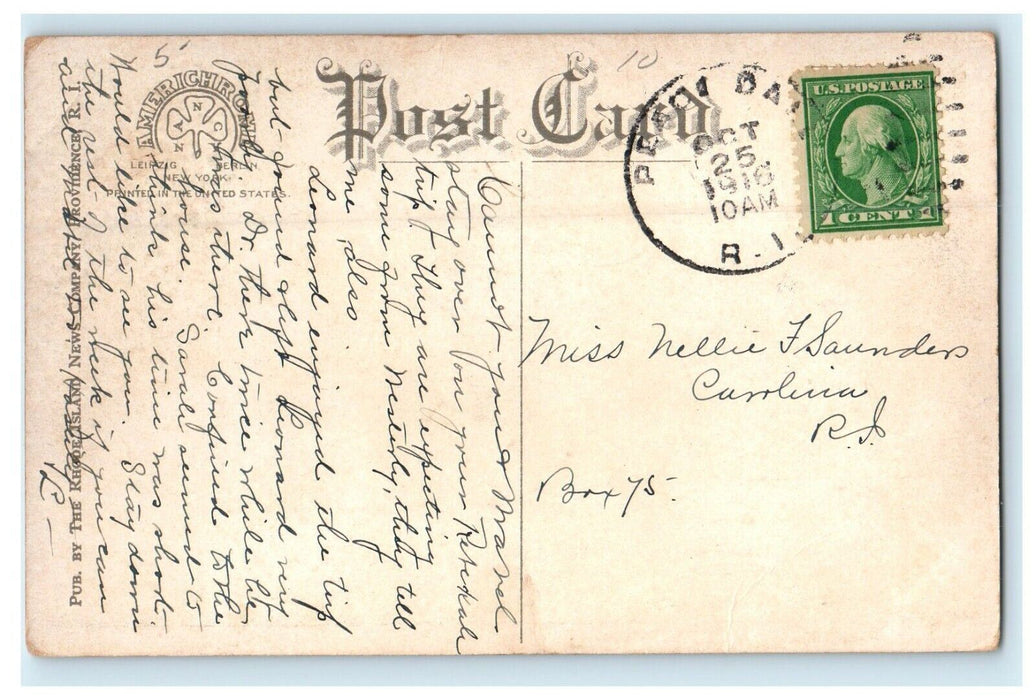 5
10
Post Card
AMERICHROME
ANCN
LEIPZIG BERLIN
NEW YORK
PRINTED IN THE UNITED STATES.
PUB. BY THE RHODE ISLAND NEWS COMPANY, PROVIDENCE, R. I.
OCT
25
1916
10AM
R.I.
U.S. POSTAGE
1 CENT 1
Cannot you & 
stay over for your
trip They are expecting
some from Westerly, they tell
me, Also
Leonard enjoyed the trip
but found Howard very
poorly. Dr. there twice while he
was there. Confined to the
house. Sarah seemed to
think his time was short.
Would like to see you. Stay down
the rest of the week if you can
and
L —
Miss Nellie F Saunders
Carolina
R.I
Box 75.